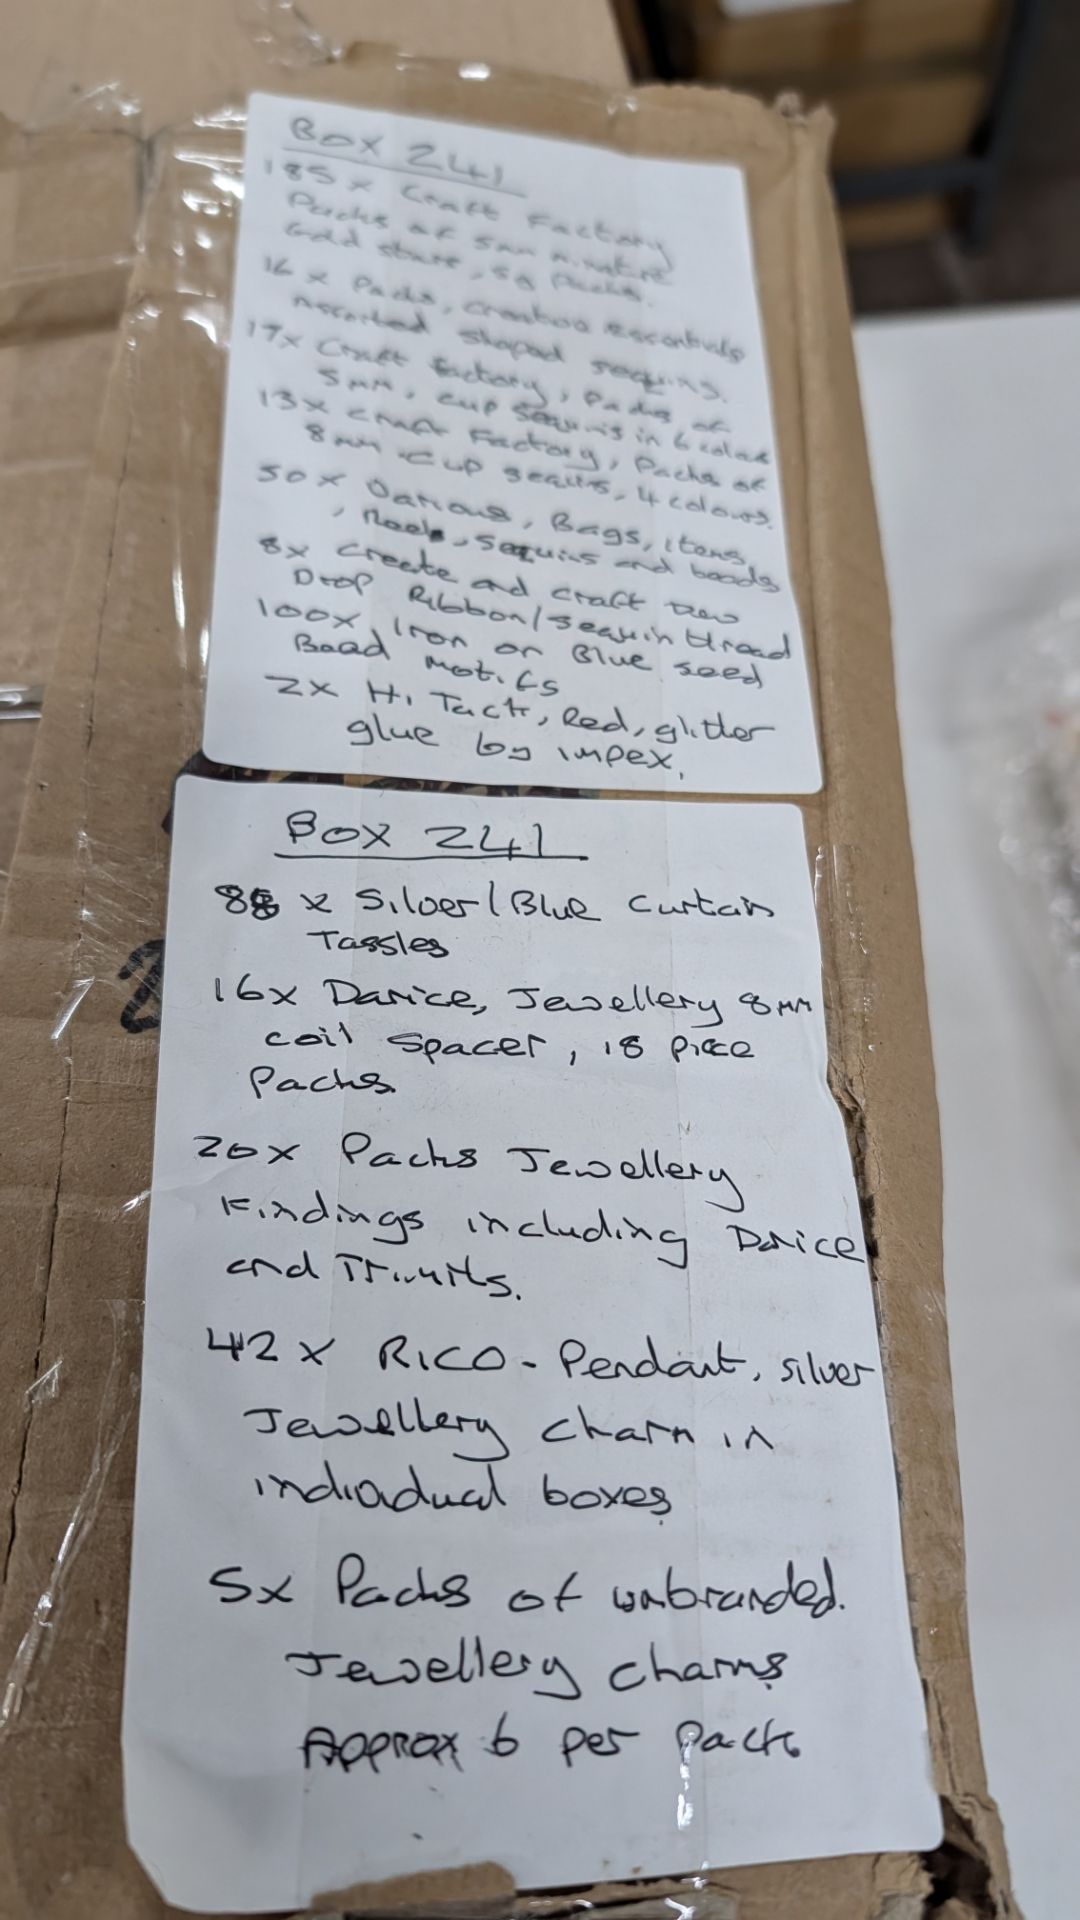 Box 241
185 x Craft Factory
Packs of 5mm
Gold stars, 5g Packs.
16 x Packs, creation essentials
Assorted shaped sequins.
17x Craft factory, Packs of
5mm, cup sequins in 6 colour
13x craft Factory, Packs of
8mm cup sequins, 4 colours.
50x Various, Bags, items,
, Reels, sequins and beads
8x create and craft
Drop Ribbon/sequin thread
100x Iron on Blue seed
Bead Motifs
2x Hi Tack, Red, glitter
glue by impex.
Box 241
88 x Silver/Blue Curtain
Tassles
16x Darice, Jewellery 8mm
coil spacer, 18 piece
Packs
20x Packs Jewellery
Findings including Darice
and Trimits.
42 x RICO - Pendant, silver
Jewellery charm in
individual boxes
5x Packs of unbranded.
Jewellery charms
Approx 6 per Pack.